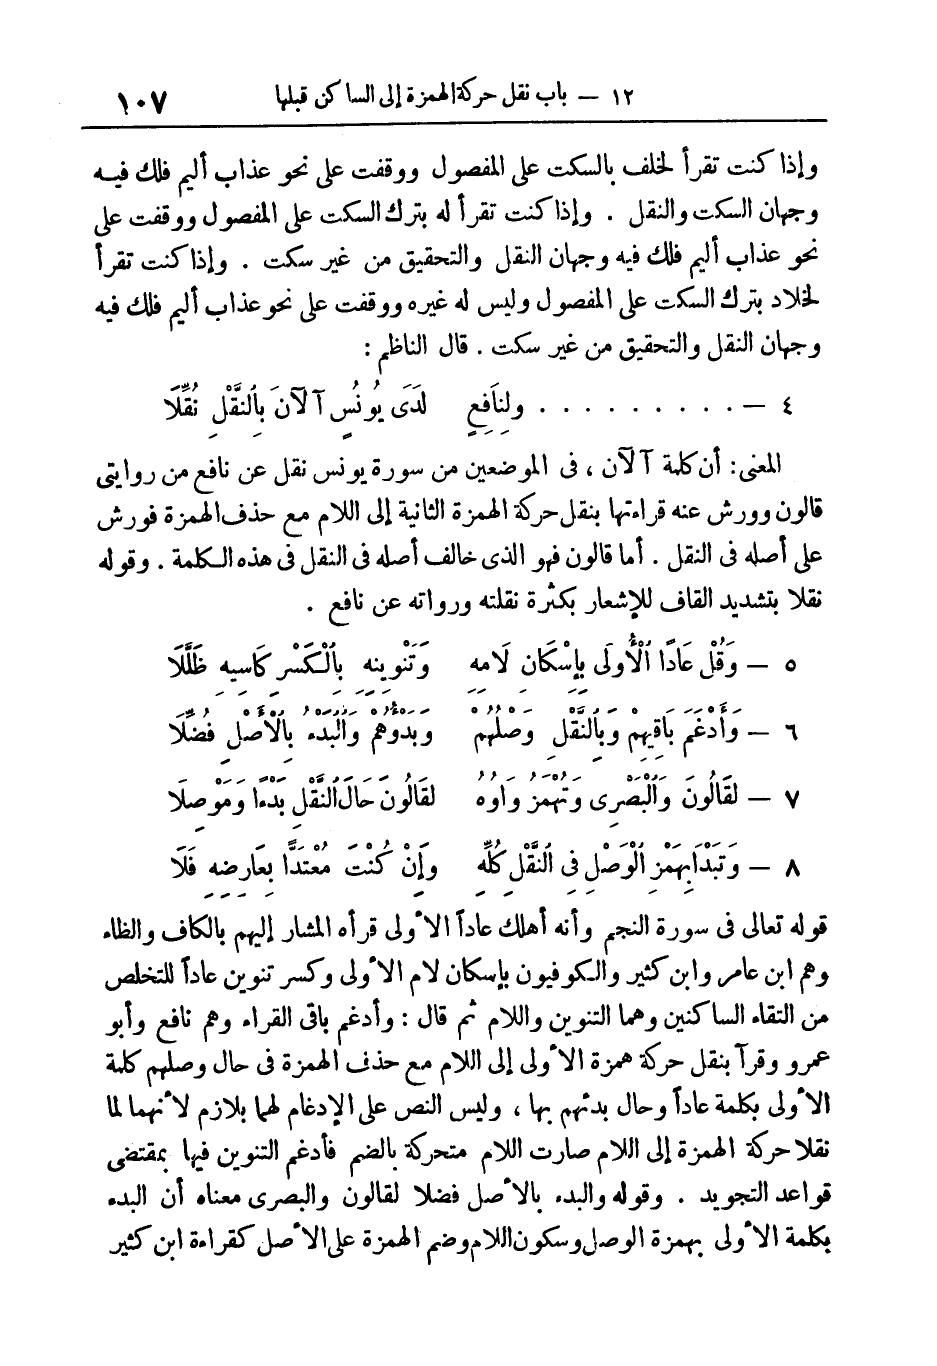 ١٢ – باب نقل حركة الهمزة إلى الساكن قبلها ١٠٧
وإذا كنت تقرأ لخلف بالسكت على المفصول ووقفت على نحو عذاب أليم فلك فيه
وجهان السكت والنقل . وإذا كنت تقرأ له بترك السكت على المفصول ووقفت على
نحو عذاب أليم فلك فيه وجهان النقل والتحقيق من غير سكت . وإذا كنت تقرأ
لخلاد بترك السكت على المفصول وليس له غيره ووقفت على نحو عذاب أليم فلك فيه
وجهان النقل والتحقيق من غير سكت . قال الناظم :
٤ – . . . . . . . . . ولِنَافِعٍ لَدَى يُونُسٍ آلآنَ بِالنَّقْلِ نُقِّلَا
المعنى : أن كلمة آلآن ، فى الموضعين من سورة يونس نقل عن نافع من روايتى
قالون وورش عنه قراءتها بنقل حركة الهمزة الثانية إلى اللام مع حذف الهمزة فورش
على أصله فى النقل . أما قالون فهو الذى خالف أصله فى النقل فى هذه الكلمة . وقوله
نقلا بتشديد القاف للإشعار بكثرة نقلته ورواته عن نافع .
٥ – وَقُلْ عَادًا الْأُولَى بِإِسْكَانِ لَامِهِ وَتَنْوِينِهِ بِالْكَسْرِ كَاسِيهِ ظَلَّلَا
٦ – وَأَدْغَمَ بَاقِيهِمْ وَبِالنَّقْلِ وَصْلُهُمْ وَبَدْؤُهُمْ وَالْبَدْءُ بِالْأَصْلِ فُضِّلَا
٧ – لِقَالُونَ وَالْبَصْرِى وَتُهْمَزُ وَاوُهُ لِقَالُونَ حَالَ النَّقْلِ بَدْءًا وَمَوْصِلَا
٨ – وَتَبْدَا بِهَمْزِ الْوَصْلِ فِى النَّقْلِ كُلِّهِ وَإِنْ كُنْتَ مُعْتَدًّا بِعَارِضِهِ فَلَا
قوله تعالى فى سورة النجم وأنه أهلك عاداً الأولى قرأه المشار إليهم بالكاف والظاء
وهم ابن عامر وابن كثير والكوفيون بإسكان لام الأولى وكسر تنوين عاداً للتخلص
من التقاء الساكنين وهما التنوين واللام ثم قال : وأدغم باقى القراء وهم نافع وأبو
عمرو وقرآ بنقل حركة همزة الأولى إلى اللام مع حذف الهمزة فى حال وصلهم كلمة
الأولى بكلمة عاداً وحال بدئهم بها ، وليس النص على الإدغام لهما بلازم لأنهما لما
نقلا حركة الهمزة إلى اللام صارت اللام متحركة بالضم فأدغم التنوين فيها بمقتضى
قواعد التجويد . وقوله والبدء بالأصل فضلا لقالون والبصرى معناه أن البدء
بكلمة الأولى بهمزة الوصل وسكون اللام وضم الهمزة على الأصل كقراءة ابن كثير